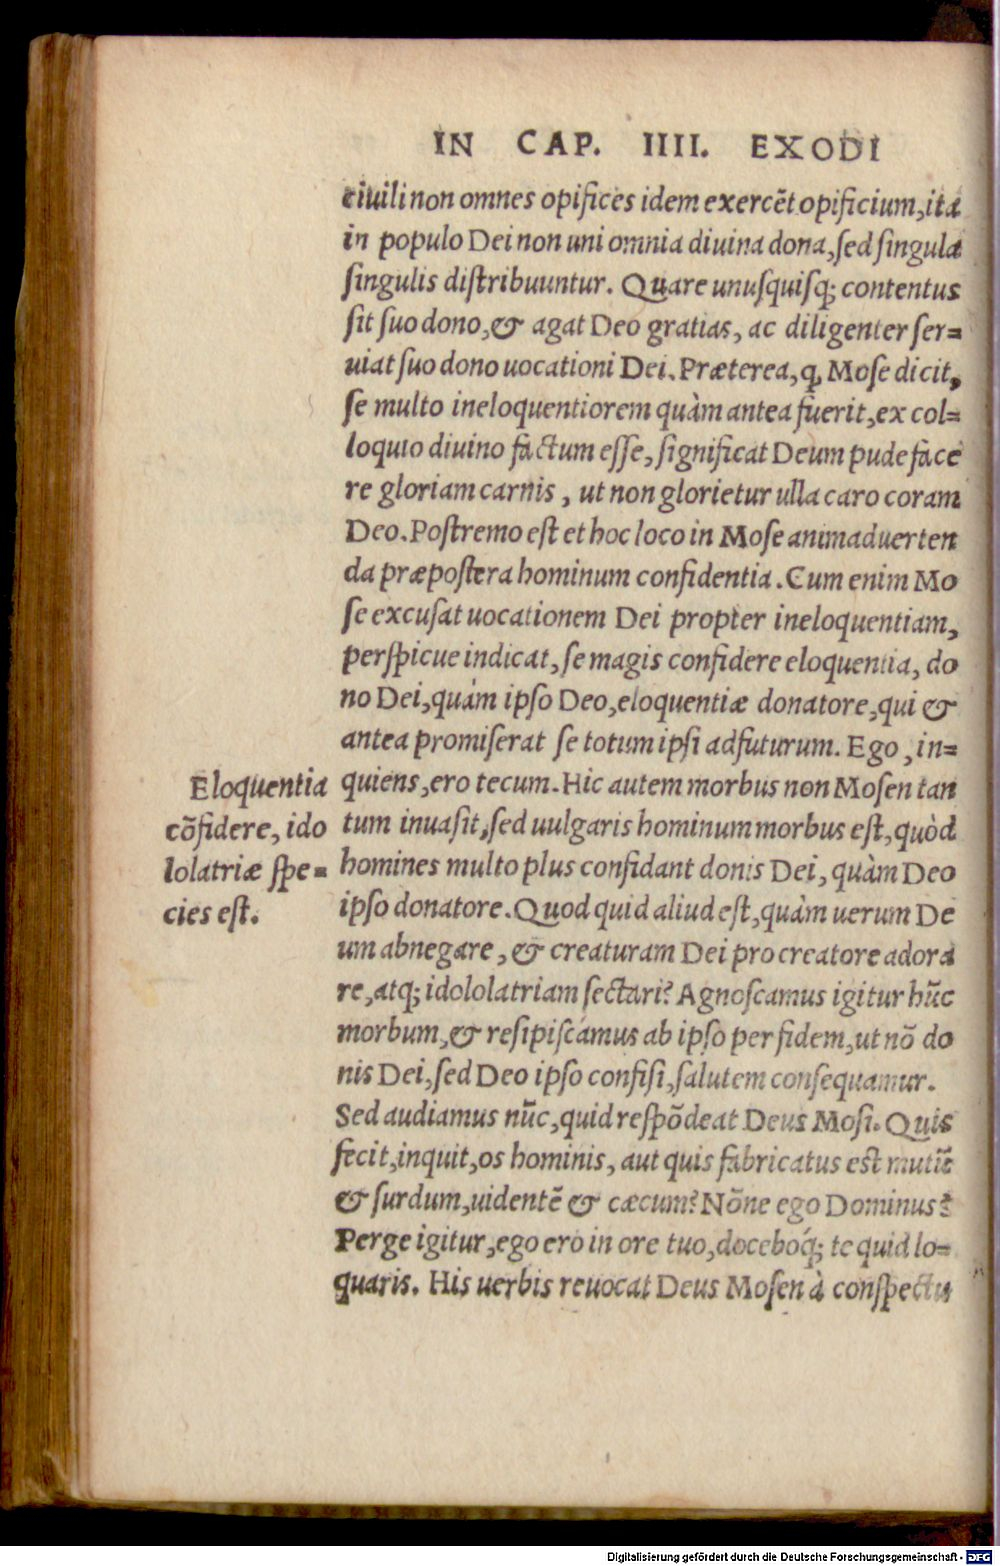 IN CAP. IIII. EXODI
ciuili non omnes opifices idem exercẽt opificium, ita
in populo Dei non uni omnia diuina dona, sed singula
singulis distribuuntur. Quare unusquisq; contentus
sit suo dono, & agat Deo gratias, ac diligenter ser=
uiat suo dono uocationi Dei. Præterea, q, Mose dicit,
se multo ineloquentiorem quàm antea fuerit, ex col=
loquio diuino factum esse, significat Deum pudeface
re gloriam carnis, ut non glorietur ulla caro coram
Deo. Postremo est et hoc loco in Mose animaduerten
da præpostera hominum confidentia. Cum enim Mo
se excusat uocationem Dei propter ineloquentiam,
perspicue indicat, se magis confidere eloquentia, do
no Dei, quàm ipso Deo, eloquentiæ donatore, qui &
antea promiserat se totum ipsi adfuturum. Ego, in=
quiens, ero tecum. Hic autem morbus non Mosen tan
tum inuasit, sed uulgaris hominum morbus est, quòd
homines multo plus confidant donis Dei, quàm Deo
ipso donatore. Quod quid aliud est, quàm uerum De
um abnegare, & creaturam Dei pro creatore adora
re, atq; idololatriam sectari? Agnoscamus igitur hũc
morbum, & resipiscamus ab ipso per fidem, ut nõ do
nis Dei, sed Deo ipso confisi, salutem consequamur.
Sed audiamus nũc, quid respõdeat Deus Mosi. Quis
fecit, inquit, os hominis, aut quis fabricatus est mutũ
& surdum, uidentẽ & cæcum? Nõne ego Dominus?
Perge igitur, ego ero in ore tuo, doceboq́; te quid lo=
quaris. His uerbis reuocat Deus Mosen à conspectu
Eloquentia
cõfidere, ido
lolatriæ spe=
cies est.
Digitalisierung gefördert durch die Deutsche Forschungsgemeinschaft - DFG